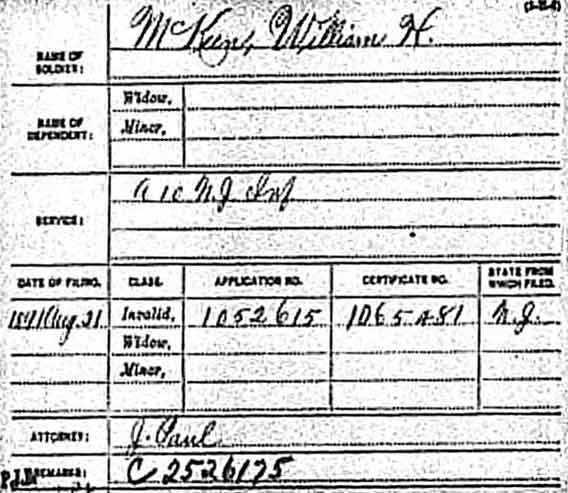 (3-11-6)
NAME OF SOLDIER: McKune, William H.
NAME OF DEPENDENT: Widow,
Minor,
SERVICE: A 10 N.J. Inf
DATE OF FILING. CLASS. APPLICATION NO. CERTIFICATE NO. STATE FROM WHICH FILED.
1891 Aug. 21 Invalid, 1052615 1065481 N.J.
Widow,
Minor,
ATTORNEY: J. Paul
REMARKS: C 2526175